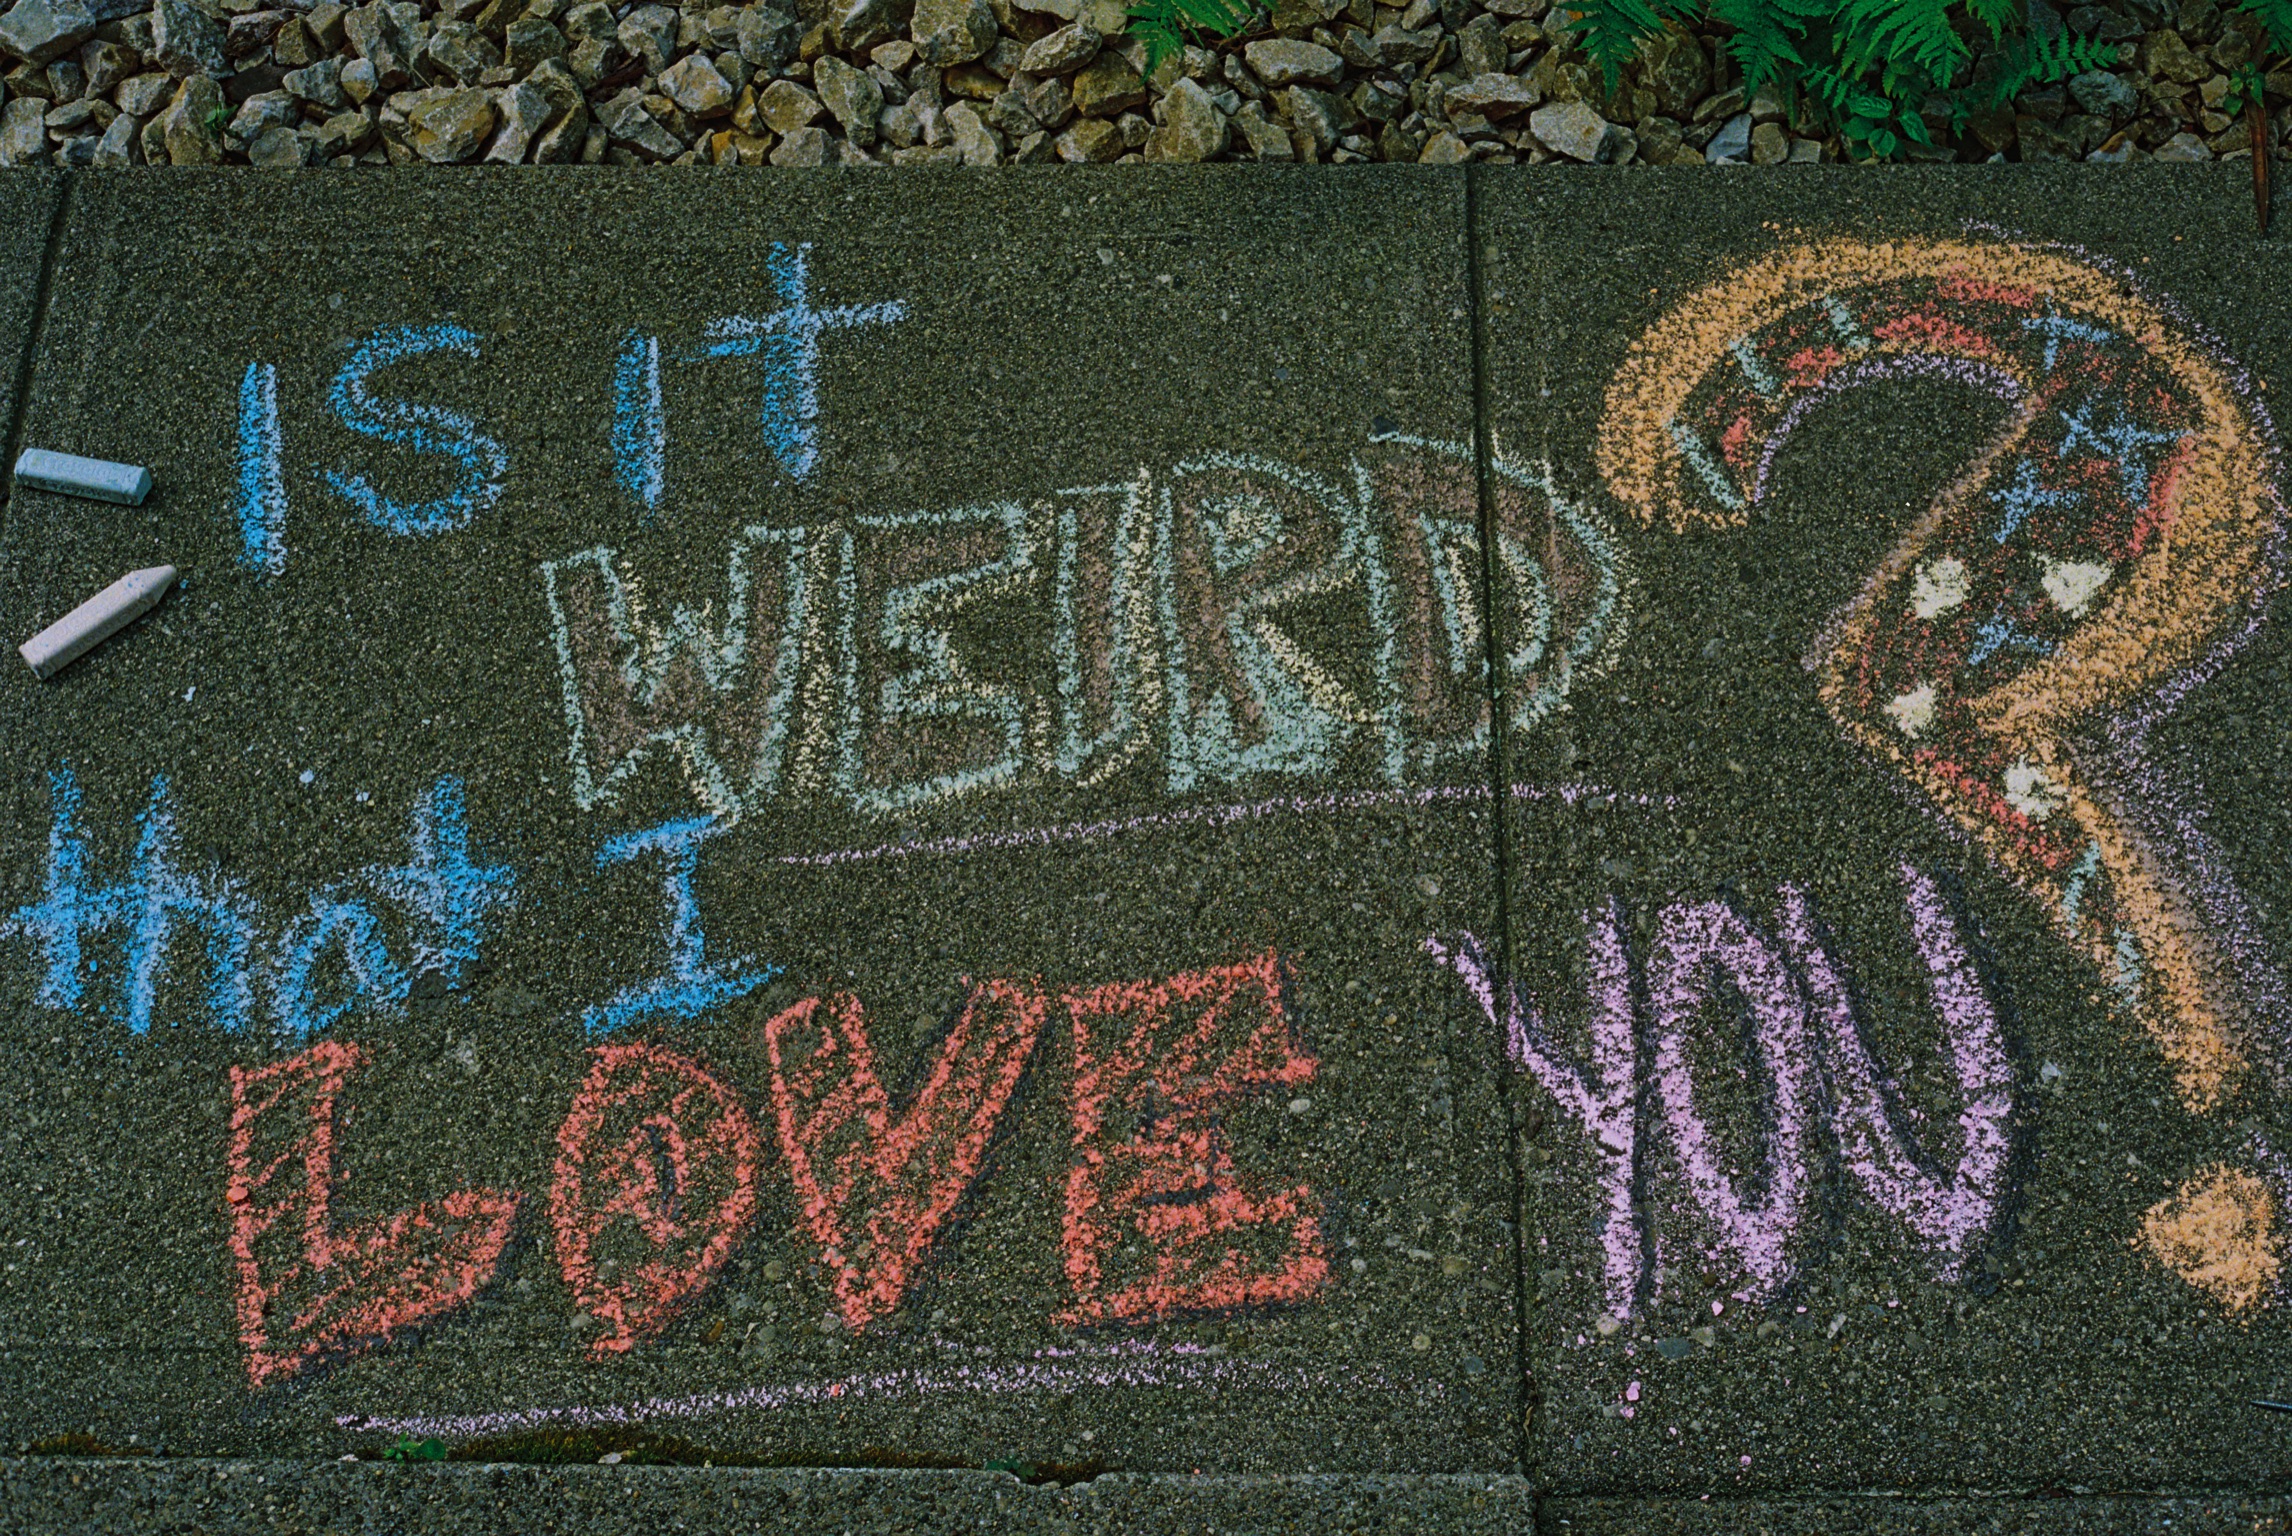 IS IT
WEIRD
that I
LOVE YOU?